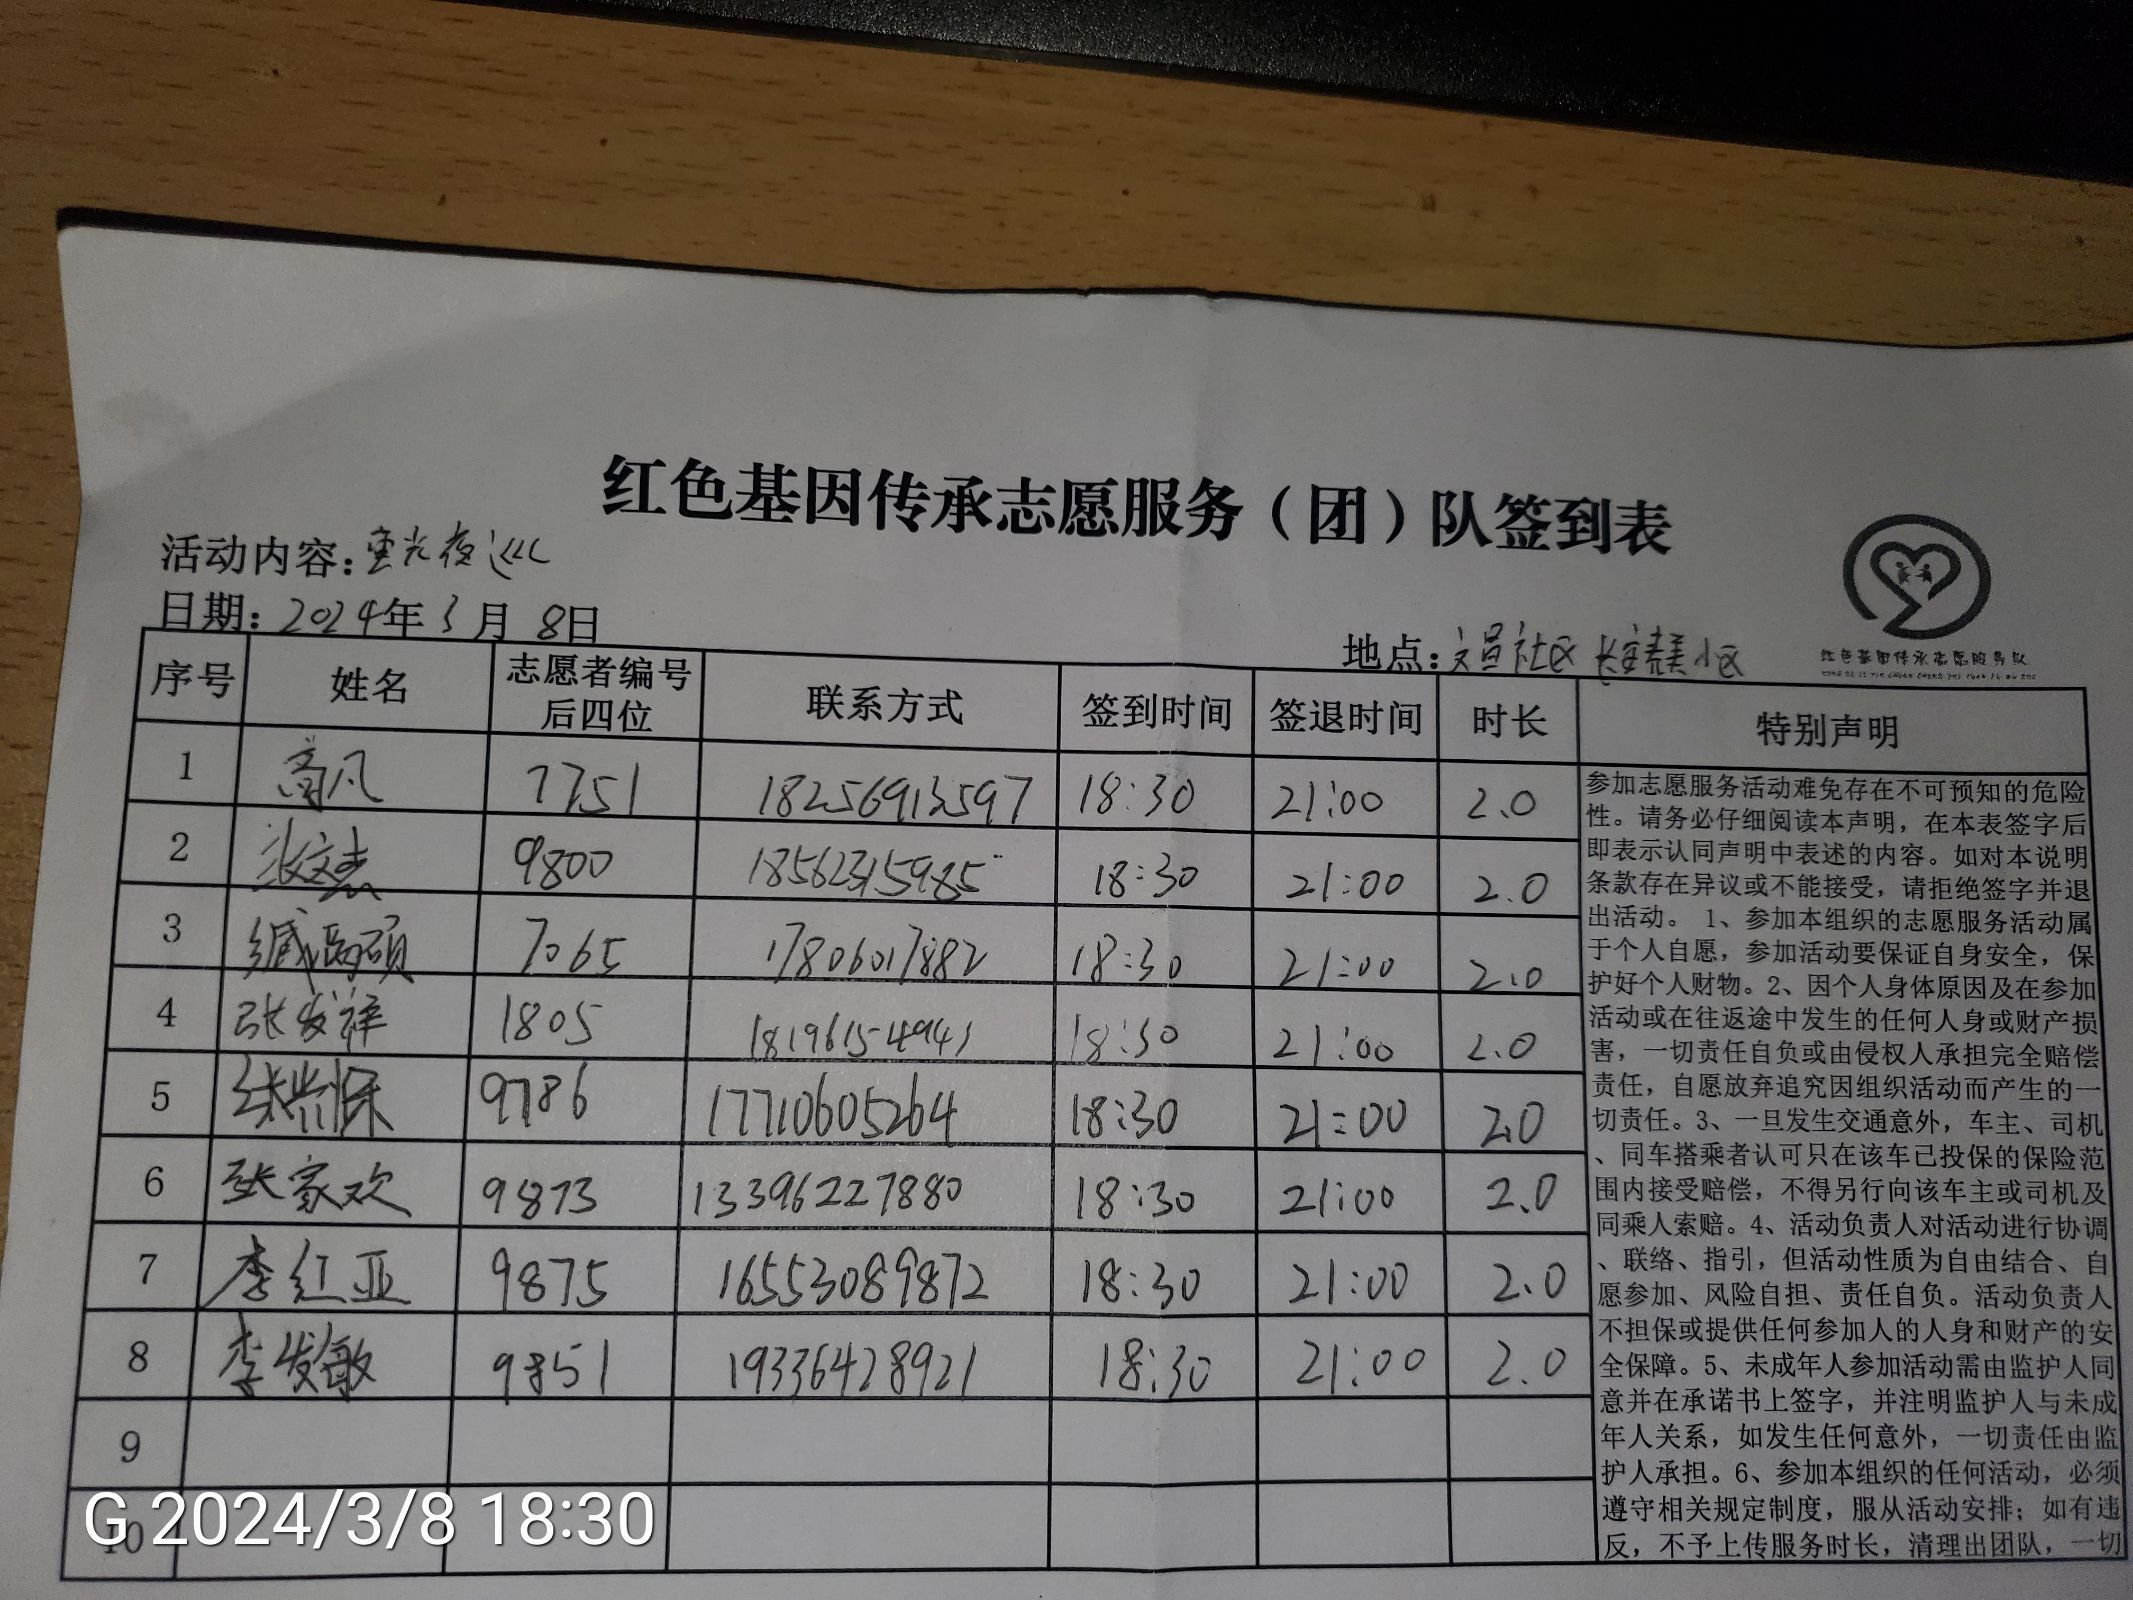 红色基因传承志愿服务（团）队签到表
活动内容：萤光夜巡
日期：2024年3月8日
地点：文昌社区 长安壹美小区
红色基因传承志愿服务队
序号 姓名 志愿者编号后四位 联系方式 签到时间 签退时间 时长 特别声明
1 高凡 7751 18256913597 18:30 21:00 2.0
2 张文志 9800 18562315985 18:30 21:00 2.0
3 臧高硕 7065 17806017882 18:30 21:00 2.0
4 张发祥 1805 18196154941 18:30 21:00 2.0
5 9786 17710605264 18:30 21:00 2.0
6 张家欢 9873 13396227880 18:30 21:00 2.0
7 李红亚 9875 16553089872 18:30 21:00 2.0
8 李发敏 9851 19336428921 18:30 21:00 2.0
9
10
参加志愿服务活动难免存在不可预知的危险
性。请务必仔细阅读本声明，在本表签字后
即表示认同声明中表述的内容。如对本说明
条款存在异议或不能接受，请拒绝签字并退
出活动。 1、参加本组织的志愿服务活动属
于个人自愿，参加活动要保证自身安全，保
护好个人财物。2、因个人身体原因及在参加
活动或在往返途中发生的任何人身或财产损
害，一切责任自负或由侵权人承担完全赔偿
责任，自愿放弃追究因组织活动而产生的一
切责任。3、一旦发生交通意外，车主、司机
、同车搭乘者认可只在该车已投保的保险范
围内接受赔偿，不得另行向该车主或司机及
同乘人索赔。4、活动负责人对活动进行协调
、联络、指引，但活动性质为自由结合、自
愿参加、风险自担、责任自负。活动负责人
不担保或提供任何参加人的人身和财产的安
全保障。5、未成年人参加活动需由监护人同
意并在承诺书上签字，并注明监护人与未成
年人关系，如发生任何意外，一切责任由监
护人承担。6、参加本组织的任何活动，必须
遵守相关规定制度，服从活动安排；如有违
反，不予上传服务时长，清理出团队，一切
G 2024/3/8 18:30